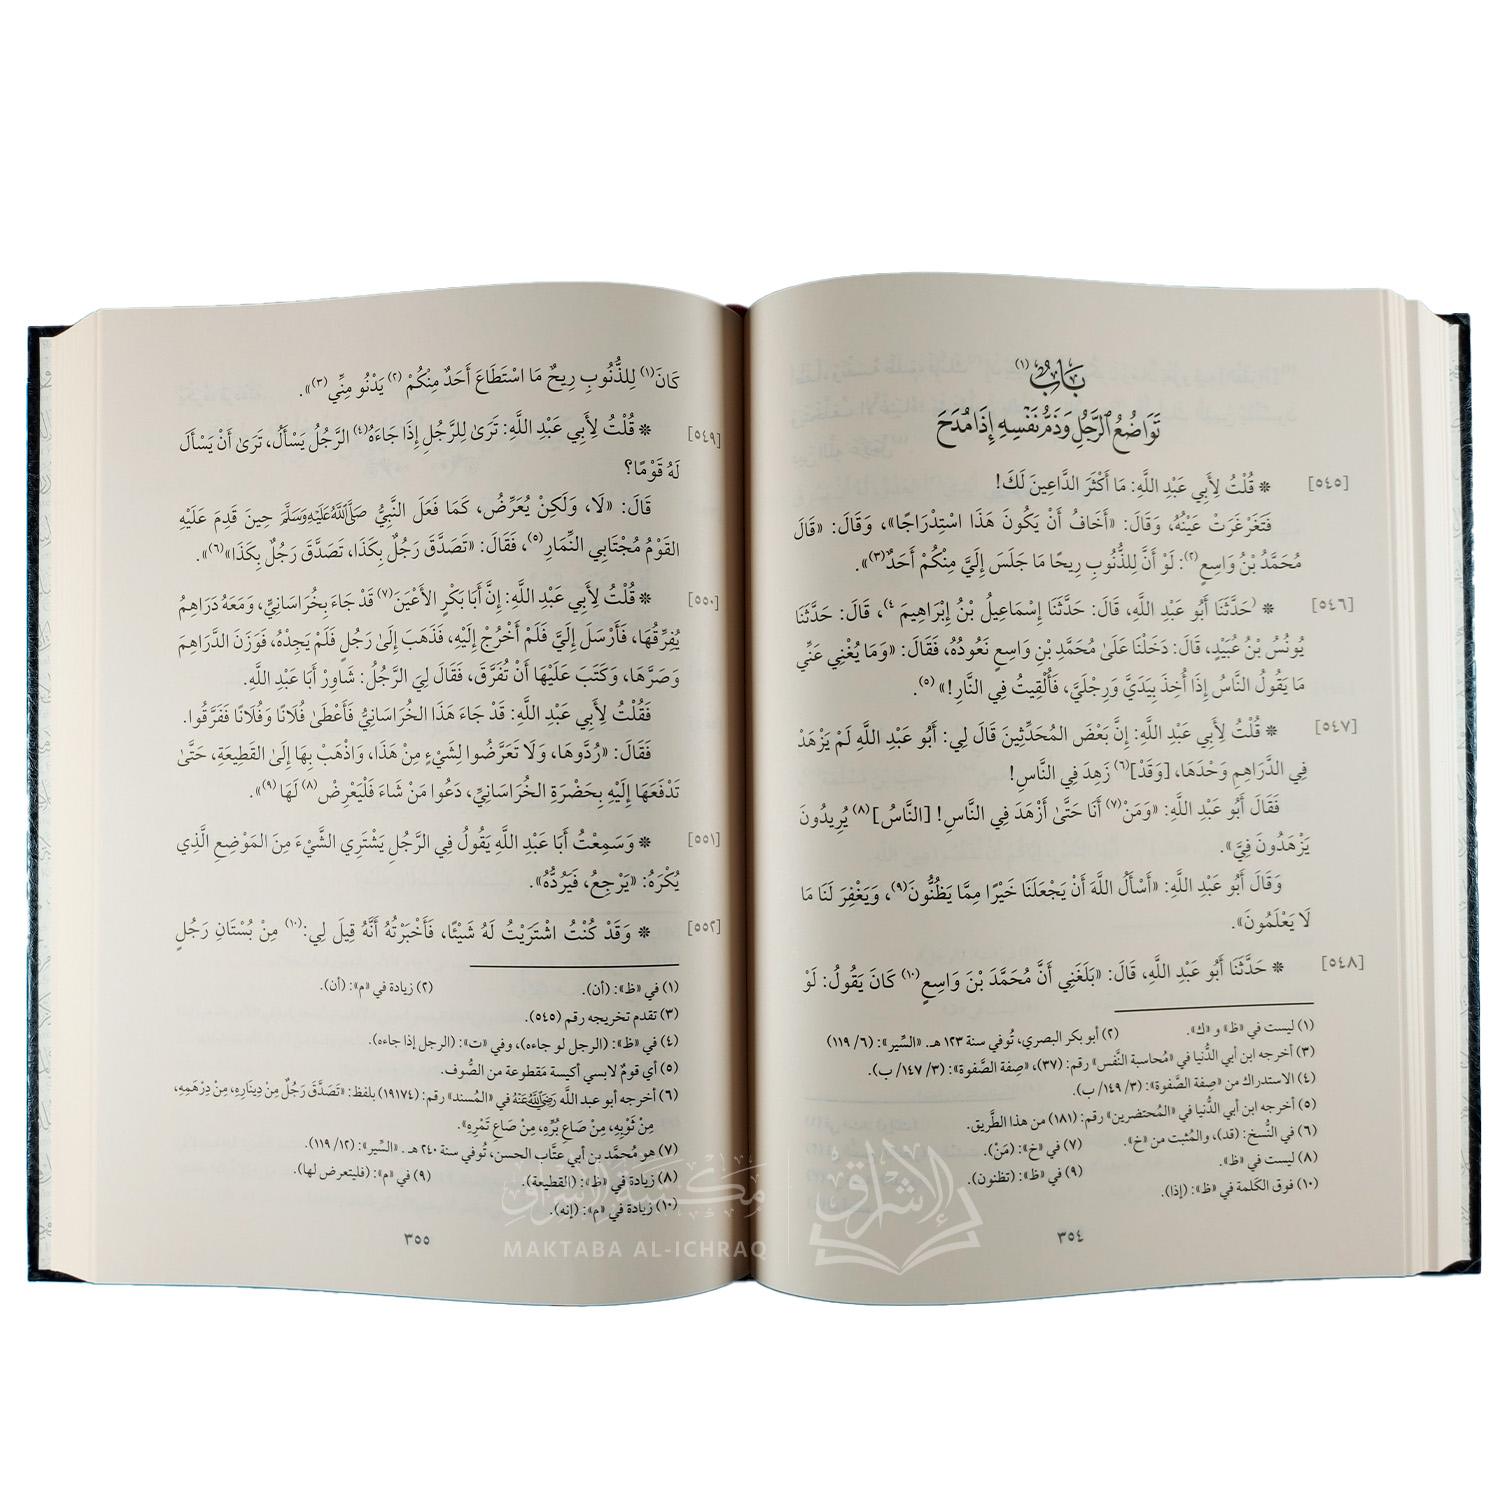 بَابُ (١)
تَوَاضُعُ الرَّجُلِ وَذَمُّ نَفْسِهِ إِذَا مُدِحَ
[٥٤٥] * قُلْتُ لِأَبِي عَبْدِ اللَّهِ: مَا أَكْثَرَ الدَّاعِينَ لَكَ!
فَتَغَرْغَرَتْ عَيْنُهُ، وَقَالَ: «أَخَافُ أَنْ يَكُونَ هَذَا اسْتِدْرَاجًا»، وَقَالَ: «قَالَ
مُحَمَّدُ بْنُ وَاسِعٍ(٢): لَوْ أَنَّ لِلذُّنُوبِ رِيحًا مَا جَلَسَ إِلَيَّ مِنْكُمْ أَحَدٌ(٣)».
[٥٤٦] * (حَدَّثَنَا أَبُو عَبْدِ اللَّهِ، قَالَ: حَدَّثَنَا إِسْمَاعِيلُ بْنُ إِبْرَاهِيمَ ٤)، قَالَ: حَدَّثَنَا
يُونُسُ بْنُ عُبَيْدٍ، قَالَ: دَخَلْنَا عَلَىٰ مُحَمَّدِ بْنِ وَاسِعٍ نَعُودُهُ، فَقَالَ: «وَمَا يُغْنِي عَنِّي
مَا يَقُولُ النَّاسُ إِذَا أُخِذَ بِيَدَيَّ وَرِجْلَيَّ، فَأُلْقِيتُ فِي النَّارِ!»(٥).
[٥٤٧] * قُلْتُ لِأَبِي عَبْدِ اللَّهِ: إِنَّ بَعْضَ المُحَدِّثِينَ قَالَ لِي: أَبُو عَبْدِ اللَّهِ لَمْ يَزْهَدْ
فِي الدَّرَاهِمِ وَحْدَهَا، [وَقَدْ](٦) زَهِدَ فِي النَّاسِ!
فَقَالَ أَبُو عَبْدِ اللَّهِ: «وَمَنْ(٧) أَنَا حَتَّىٰ أَزْهَدَ فِي النَّاسِ! [النَّاسُ](٨) يُرِيدُونَ
يَزْهَدُونَ فِيَّ».
وَقَالَ أَبُو عَبْدِ اللَّهِ: «أَسْأَلُ اللَّهَ أَنْ يَجْعَلَنَا خَيْرًا مِمَّا يَظُنُّونَ(٩)، وَيَغْفِرَ لَنَا مَا
لَا يَعْلَمُونَ».
[٥٤٨] * حَدَّثَنَا أَبُو عَبْدِ اللَّهِ، قَالَ: «بَلَغَنِي أَنَّ مُحَمَّدَ بْنَ وَاسِعٍ(١٠) كَانَ يَقُولُ: لَوْ
(١) ليست في «ظ» و «ك». (٢) أبو بكر البصري، تُوفي سنة ١٢٣ هـ. «السِّير»: (٦/ ١١٩)
(٣) أخرجه ابن أبي الدُّنيا في «مُحاسبة النَّفس» رقم: (٣٧)، «صِفة الصَّفوة»: (٣/ ١٤٧/ ب).
(٤) الاستدراك من «صِفة الصَّفوة»: (٣/ ١٤٩/ ب).
(٥) أخرجه ابن أبي الدُّنيا في «المُحتضرين» رقم: (١٨١) من هذا الطَّريق.
(٦) في النُّسخ: (قد)، والمُثبت من «خ». (٧) في «خ»: (مَنْ).
(٨) ليست في «ظ». (٩) في «ظ»: (تظنون).
(١٠) فوق الكَلمة في «ظ»: (إذا).
٣٥٤
كَانَ(١) لِلذُّنُوبِ رِيحٌ مَا اسْتَطَاعَ أَحَدٌ مِنْكُمْ(٢) يَدْنُو مِنِّي(٣)».
[٥٤٩] * قُلْتُ لِأَبِي عَبْدِ اللَّهِ: تَرَىٰ لِلرَّجُلِ إِذَا جَاءَهُ(٤) الرَّجُلُ يَسْأَلُ، تَرَىٰ أَنْ يَسْأَلَ
لَهُ قَوْمًا؟
قَالَ: «لَا، وَلَكِنْ يُعَرِّضُ، كَمَا فَعَلَ النَّبِيُّ صَلَّى اللَّهُ عَلَيْهِ وَسَلَّمَ حِينَ قَدِمَ عَلَيْهِ
القَوْمُ مُجْتَابِي النِّمَارِ(٥)، فَقَالَ: «تَصَدَّقَ رَجُلٌ بِكَذَا، تَصَدَّقَ رَجُلٌ بِكَذَا»(٦)».
[٥٥٠] * قُلْتُ لِأَبِي عَبْدِ اللَّهِ: إِنَّ أَبَا بَكْرٍ الأَعْيَنَ(٧) قَدْ جَاءَ بِخُرَاسَانِيٍّ، وَمَعَهُ دَرَاهِمُ
يُفَرِّقُهَا، فَأَرْسَلَ إِلَيَّ فَلَمْ أَخْرُجْ إِلَيْهِ، فَذَهَبَ إِلَىٰ رَجُلٍ فَلَمْ يَجِدْهُ، فَوَزَنَ الدَّرَاهِمَ
وَصَرَّهَا، وَكَتَبَ عَلَيْهَا أَنْ تُفَرَّقَ، فَقَالَ لِيَ الرَّجُلُ: شَاوِرْ أَبَا عَبْدِ اللَّهِ.
فَقُلْتُ لِأَبِي عَبْدِ اللَّهِ: قَدْ جَاءَ هَذَا الخُرَاسَانِيُّ فَأَعْطَىٰ فُلَانًا وَفُلَانًا فَفَرَّقُوا.
فَقَالَ: «رُدُّوهَا، وَلَا تَعَرَّضُوا لِشَيْءٍ مِنْ هَذَا، وَاذْهَبْ بِهَا إِلَىٰ القَطِيعَةِ، حَتَّىٰ
تَدْفَعَهَا إِلَيْهِ بِحَضْرَةِ الخُرَاسَانِيِّ، دَعُوا مَنْ شَاءَ فَلْيَعْرِضْ(٨) لَهَا(٩)».
[٥٥١] * وَسَمِعْتُ أَبَا عَبْدِ اللَّهِ يَقُولُ فِي الرَّجُلِ يَشْتَرِي الشَّيْءَ مِنَ المَوْضِعِ الَّذِي
يُكْرَهُ: «يَرْجِعُ، فَيَرُدُّهُ».
[٥٥٢] * وَقَدْ كُنْتُ اشْتَرَيْتُ لَهُ شَيْئًا، فَأَخْبَرْتُهُ أَنَّهُ قِيلَ لِي:(١٠) مِنْ بُسْتَانِ رَجُلٍ
(١) في «ظ»: (أن). (٢) زيادة في «م»: (أن).
(٣) تقدم تخريجه رقم (٥٤٥).
(٤) في «ظ»: (الرجل لو جاءه)، وفي «ت»: (الرجل إذا جاءه).
(٥) أي قومٌ لابسي أكيسة مَقطوعة من الصُّوف.
(٦) أخرجه أبو عبد اللَّه رَضِيَ اللَّهُ عَنْهُ في «المُسند» رقم: (١٩١٧٤) بلفظ: «تَصَدَّقَ رَجُلٌ مِنْ دِينَارِهِ، مِنْ دِرْهَمِهِ،
مِنْ ثَوْبِهِ، مِنْ صَاعِ بُرِّهِ، مِنْ صَاعِ تَمْرِهِ».
(٧) هو مُحمَّد بن أبي عتَّاب الحسن، تُوفي سنة ٢٤٠ هـ. «السِّير»: (١٢/ ١١٩).
(٨) زيادة في «ظ»: (القطيعة). (٩) في «م»: (فليتعرض لها).
(١٠) زيادة في «م»: (إنه).
٣٥٥
مكتبة الإشراق
MAKTABA AL-ICHRAQ
الإشراق